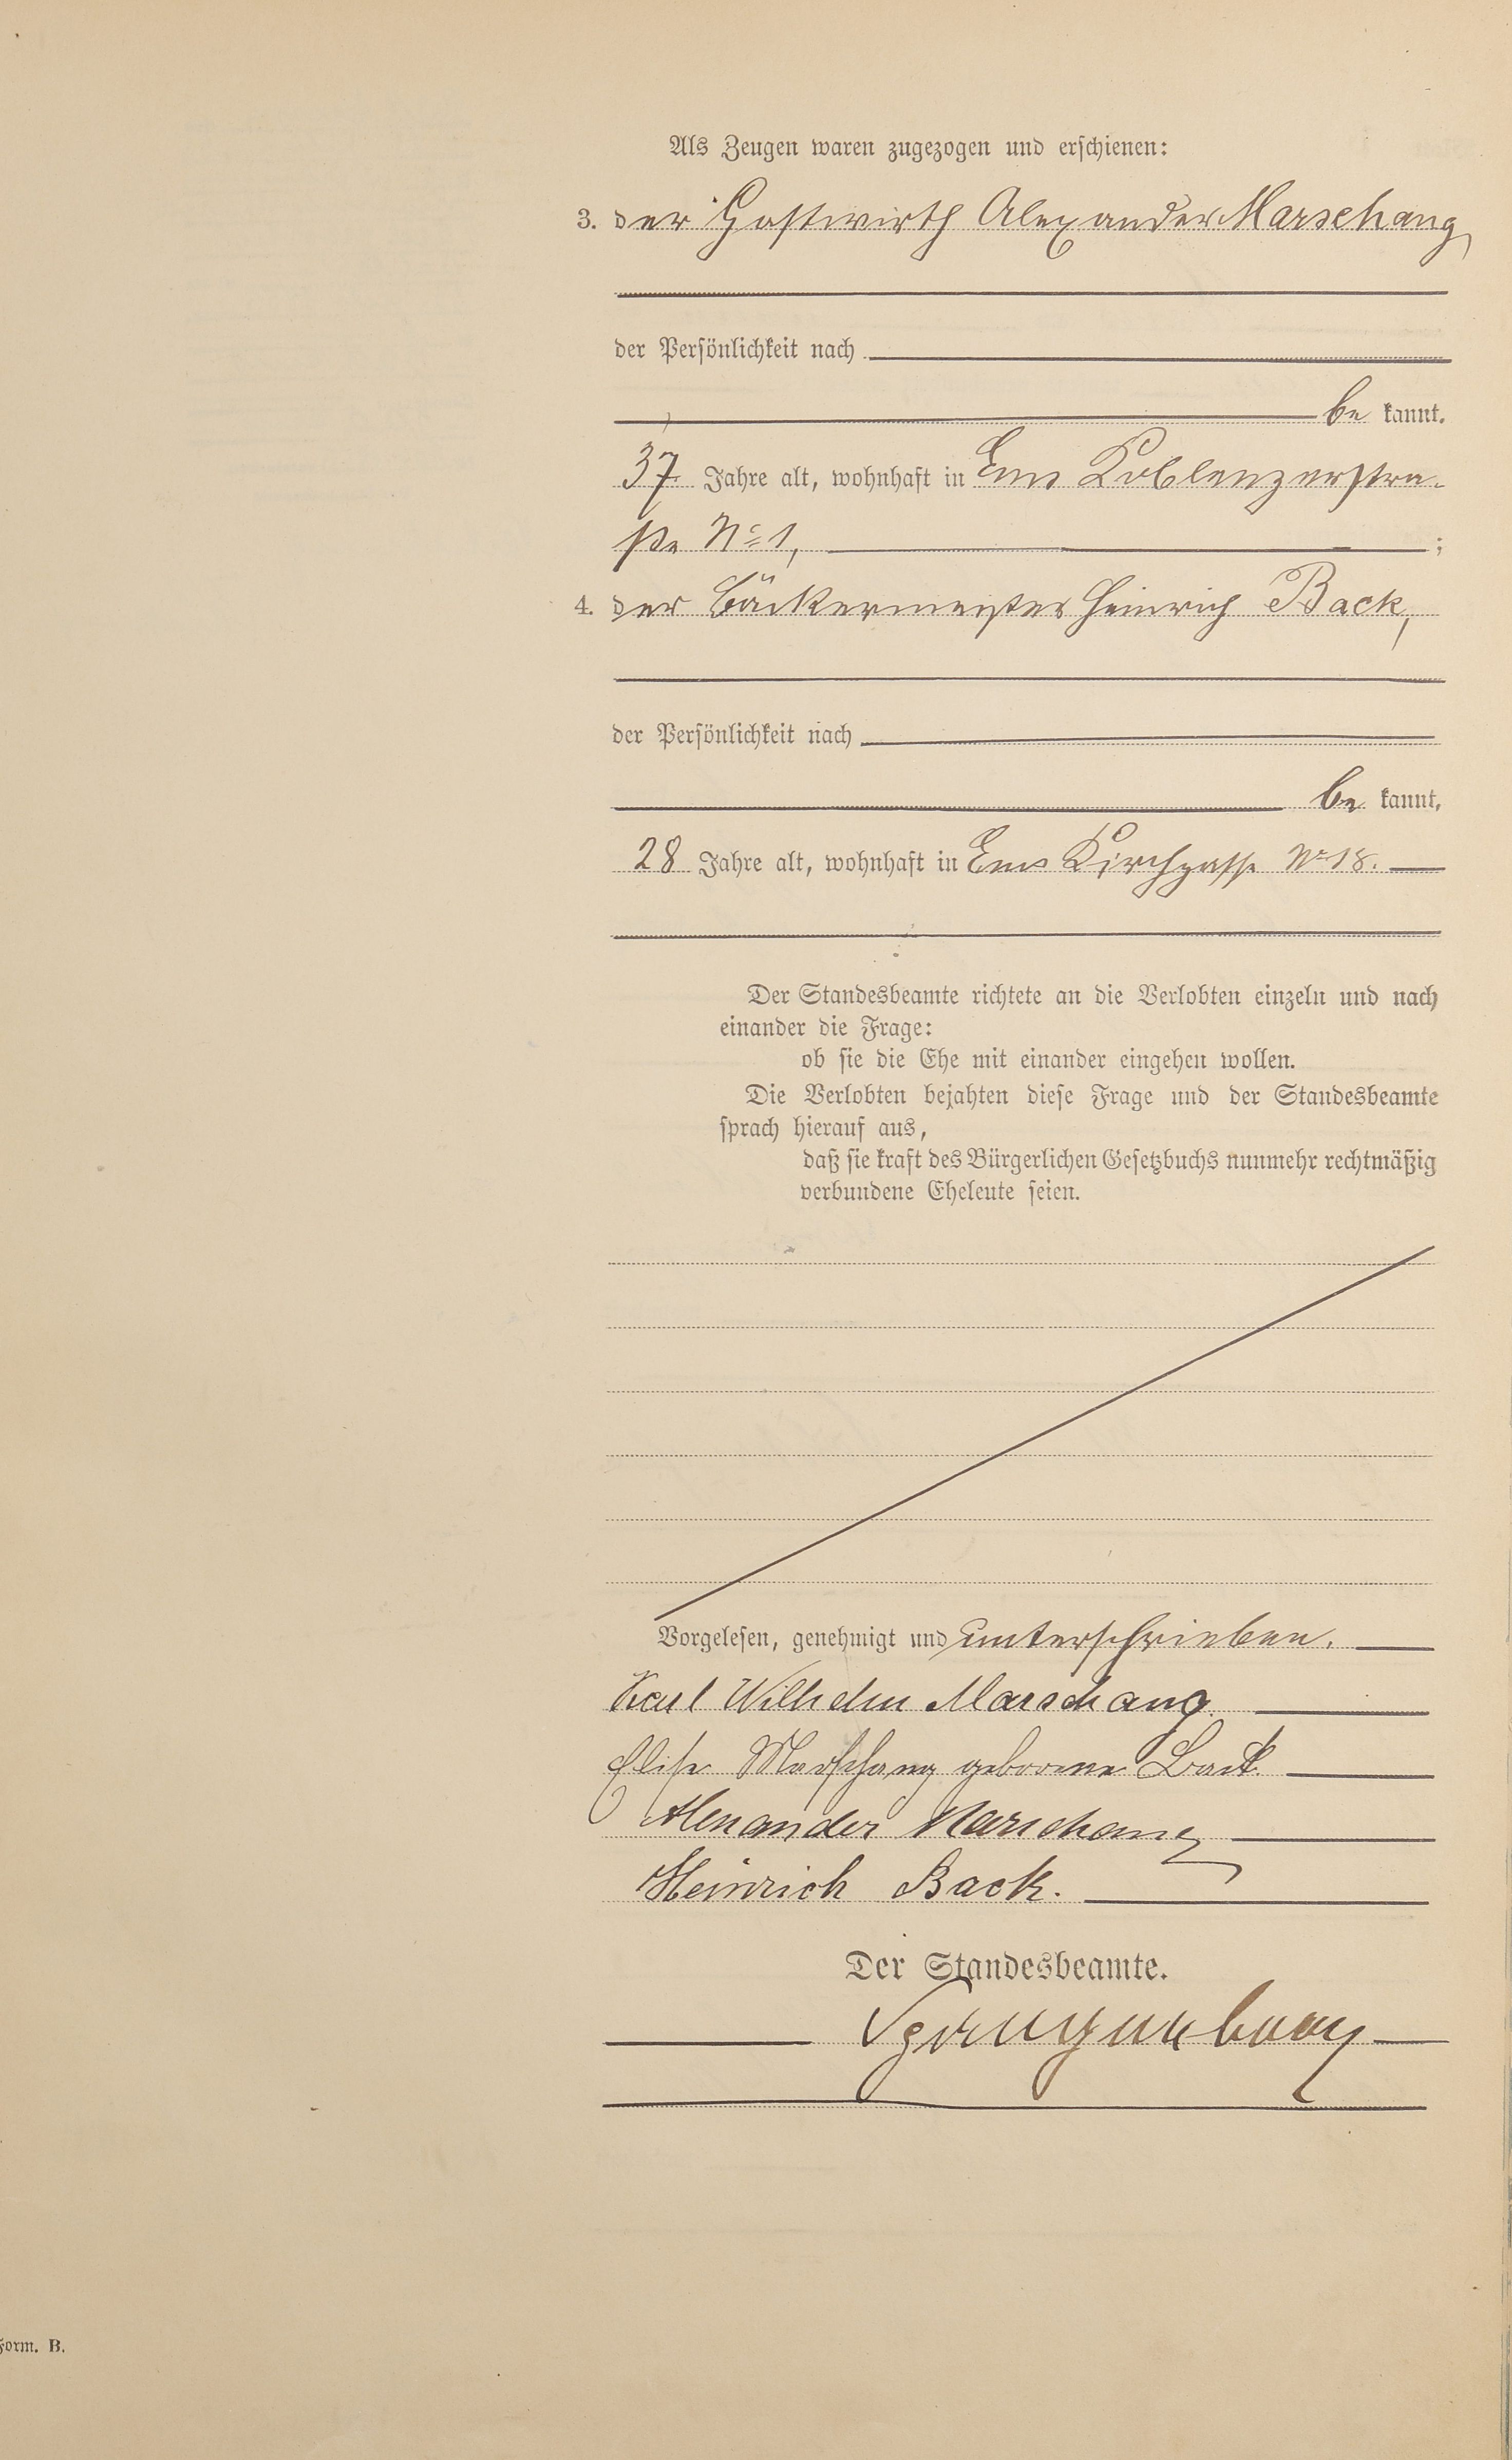 Als Zeugen waren zugezogen und erschienen:
3. der Gastwirth Alexander Marschang,
der Persönlichkeit nach
be kannt.
37 Jahre alt, wohnhaft in Ems Koblenzerstra-
ße No 1, ;
4. der Bäckermeister Heinrich Back,
der Persönlichkeit nach
be kannt,
28 Jahre alt, wohnhaft in Ems Kirchgasse No 18.
Der Standesbeamte richtete an die Verlobten einzeln und nach
einander die Frage:
ob sie die Ehe mit einander eingehen wollen.
Die Verlobten bejahten diese Frage und der Standesbeamte
sprach hierauf aus,
daß sie kraft des Bürgerlichen Gesetzbuchs nunmehr rechtmäßig
verbundene Eheleute seien.
Vorgelesen, genehmigt und unterschrieben.
Karl Wilhelm Marschang.
Elise Marschang geborene Back.
Alexander Marschang
Heinrich Back.
Der Standesbeamte.
Form. B.